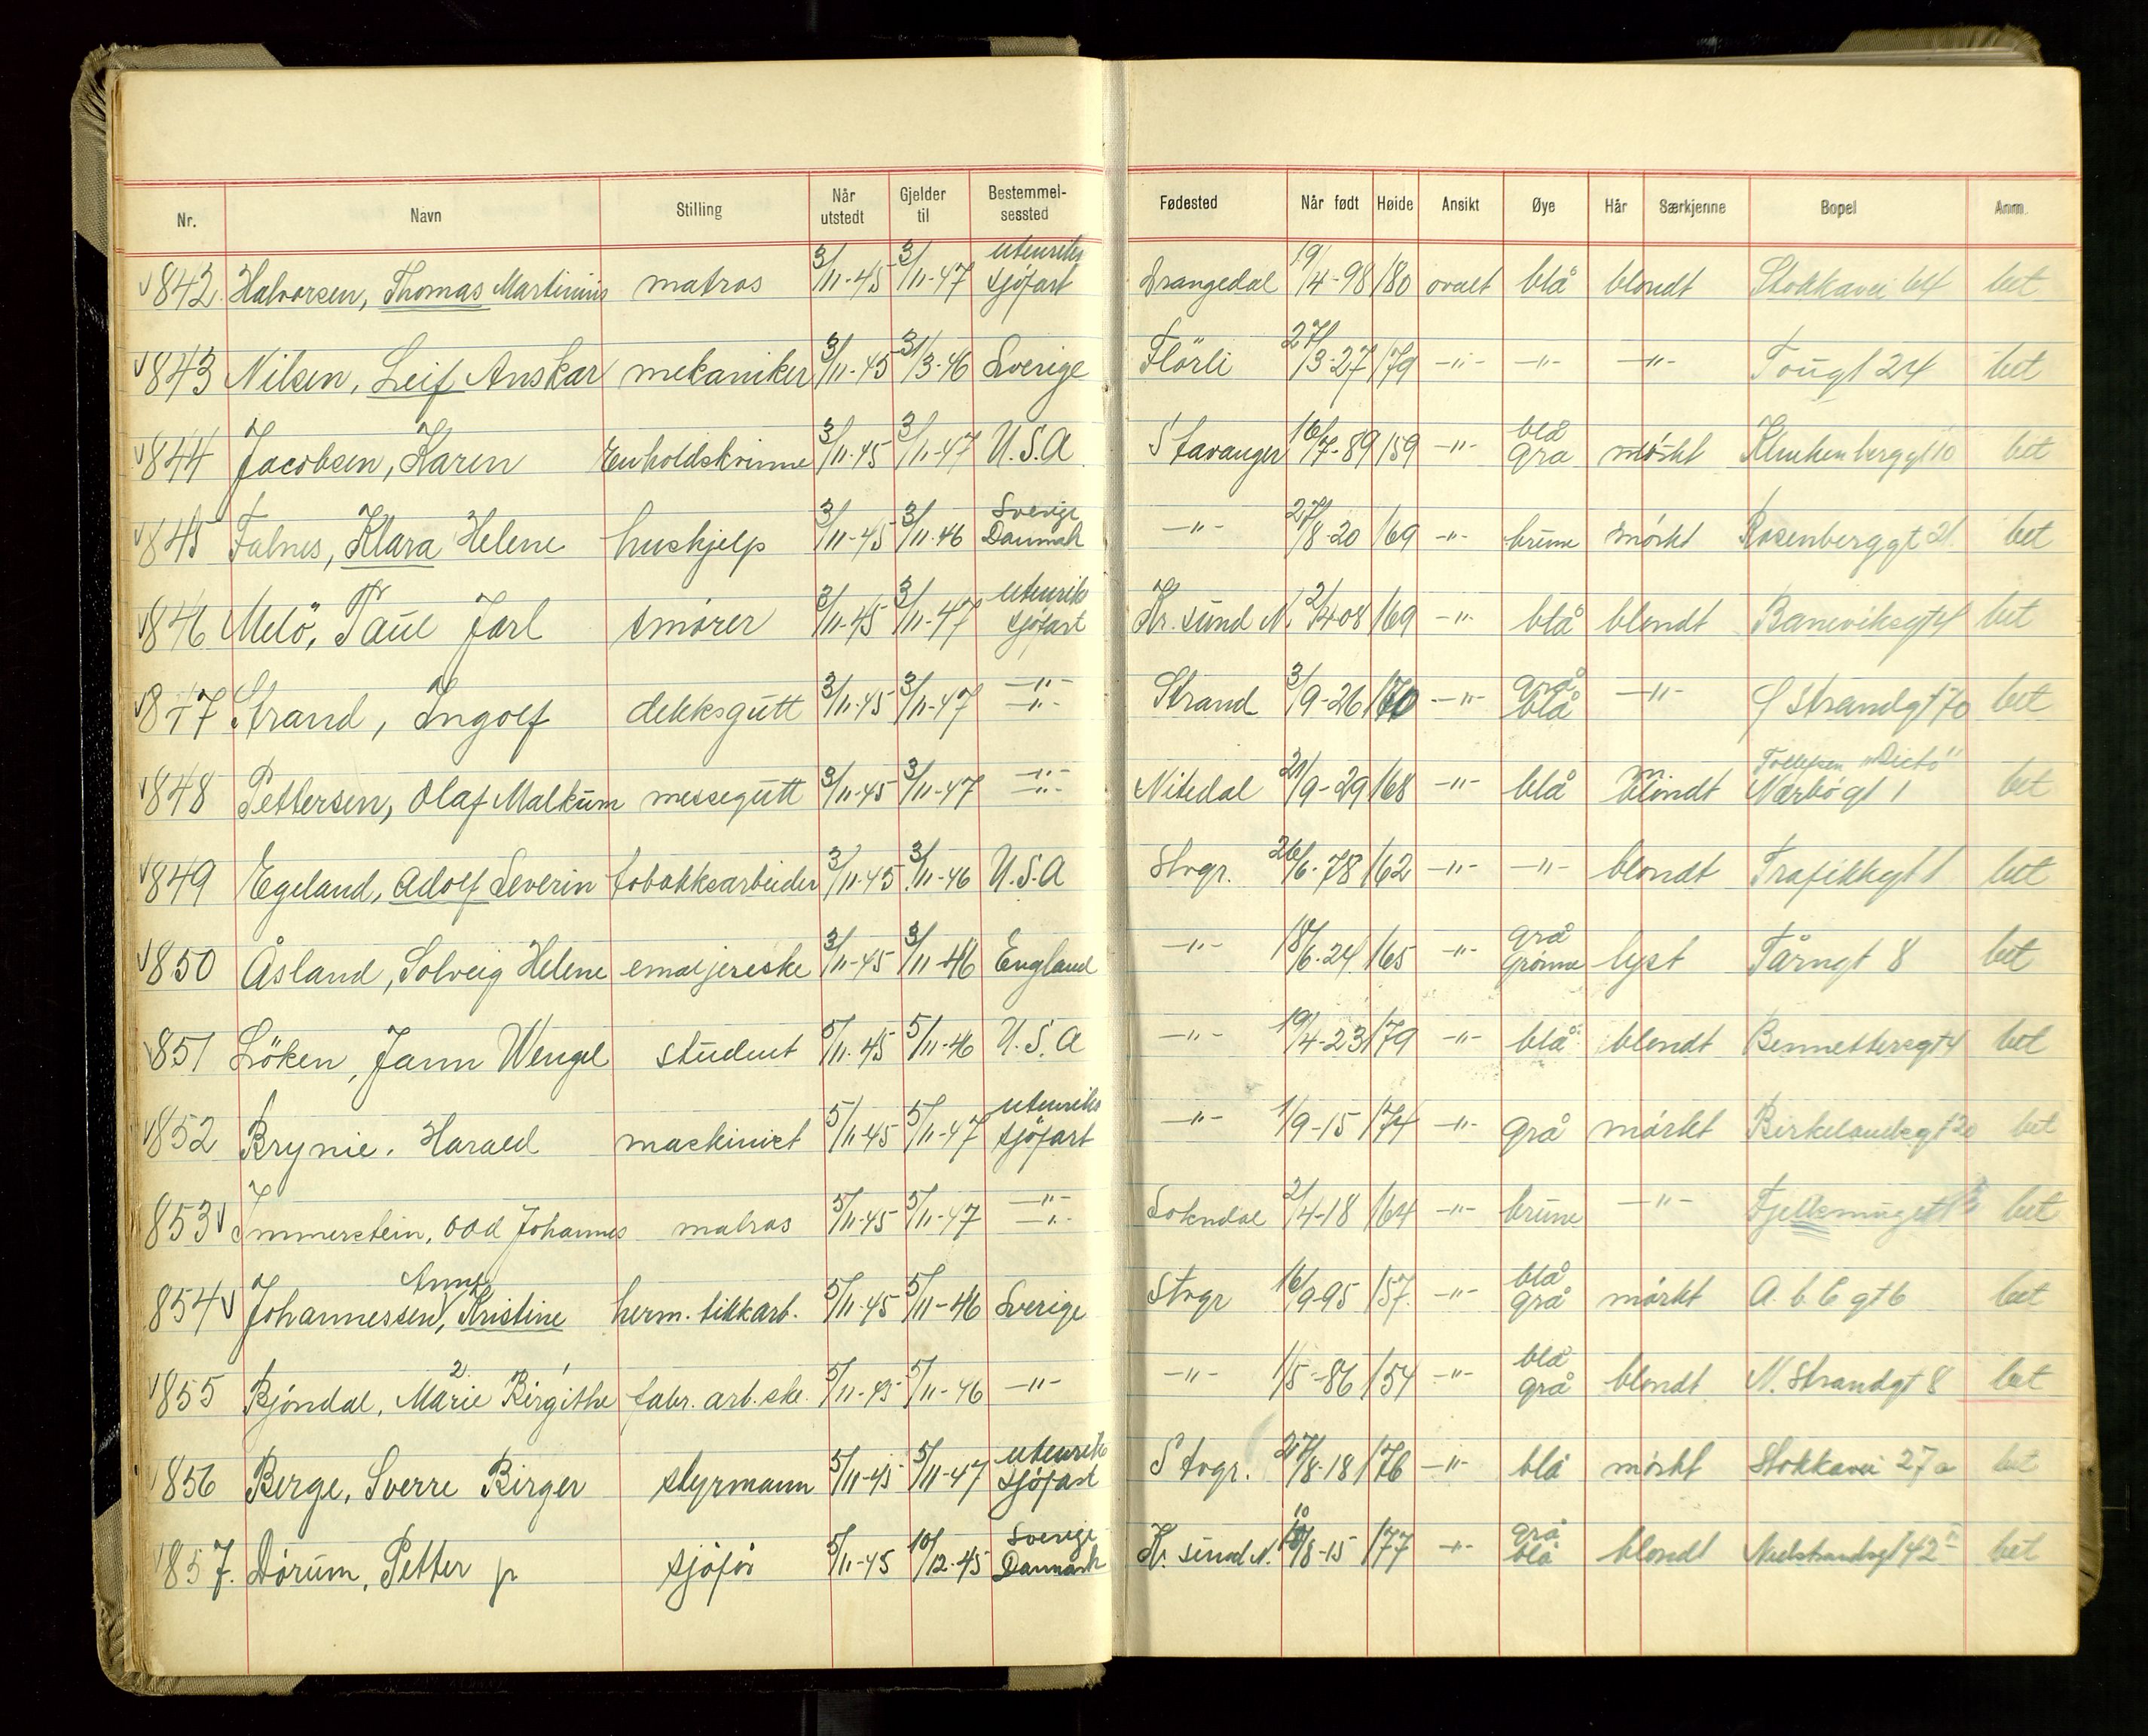 Nr. Navn Stilling Når utstedt Gjelder til Bestemmel-sessted Fødested Når født Høide Ansikt Øye Hår Særkjenne Bopel Anm.
842. Halvorsen, Thomas Martinius matros 3/11-45 3/11-47 utenriks sjøfart Drangedal 19/4-98 180 ovalt blå blondt Stokkavei 64 bet
843 Nilsen, Leif Anskar mekaniker 3/11-45 31/3-46 Sverige Flörli 27/3-27 179 -"- -"- -"- Tougt 24 bet
844 Jacobsen, Karen Enholdskvinne 3/11-45 3/11-47 U.S.A. Stavanger 16/7-89 159 -"- blå grå mørkt Klinkenberggt 10 bet
845 Falnes, Klara Helene hushjelp 3/11-45 3/11-46 Sverige Danmark -"- 27/8-20 169 -"- brune mørkt Rosenberggt 21 bet
846 Melö, Paul Jarl smører 3/11-45 3/11-47 utenriks sjøfart Kr.sund N. 2/4-08 169 -"- blå blondt Baneviksgt 4 bet
847 Strand, Ingolf dekksgutt 3/11-45 3/11-47 -"- -"- Strand 3/9-26 170 -"- grå blå -"- Ø Strandgt 70 bet
848 Pettersen, Olaf Malkum messegutt 3/11-45 3/11-47 -"- -"- Nitedal 21/9-29 168 -"- blå m. blondt Nærbøgt 1 bet
849 Egeland, Adolf Severin tobakksarbeider 3/11-45 3/11-46 U.S.A Stvgr. 26/6-78 162 -"- -"- blondt Trafikkgt 1 bet
850 Åsland, Solveig Helene emaljereske 3/11-45 3/11-46 England -"- 18/6-24 165 -"- grå grønne lyst Tårngt 8 bet
851 Löken, Jann Wengel student 5/11-45 5/11-46 U.S.A -"- 19/4-23 179 -"- blå blondt Bennettersgt 4 bet
852 Brynie, Harald maskinist 5/11-45 5/11-47 utenriks sjøfart -"- 1/9-15 174 -"- grå mørkt Birkelandsgt 20 bet
853 Immerstein, Odd Johannes matros 5/11-45 5/11-47 -"- -"- Sokndal 2/4-18 164 -"- brune -"- bet
854 Johannessen, Anna Kristine herm. likkarb. 5/11-45 5/11-46 Sverige Stvgr 16/9-95 157. -"- blå grå mørkt A.b.C gt 6 bet
855 Bjöndal, Marie Birgithe 2 1 fabr. arb. ske. 5/11-45 5/11-46 -"- -"- 1/5-86 154 -"- blå grå blondt N. Strandgt 8 bet
856 Berge, Sverre Birger styrmann 5/11-45 5/11-47 utenriks sjøfart Stvgr. 27/8-18 176 -"- blå mørkt Stokkavei 27a bet
857. Dørum, Petter p sjøfør 5/11-45 10/12-45 Sverige Danmark Kr.sund N. 10/8-15 177 -"- grå blå blondt Nedstrandsgt 42 II bet